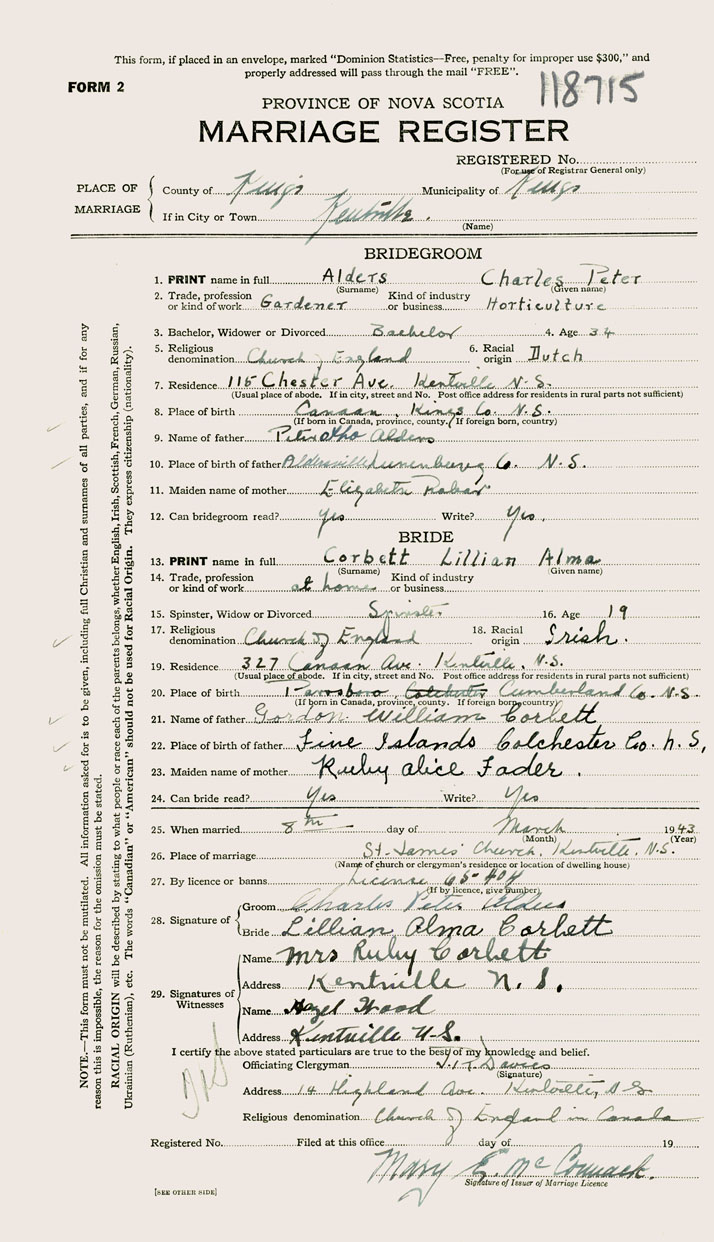 This form, if placed in an envelope, marked "Dominion Statistics—Free, penalty for improper use $300," and
properly addressed will pass through the mail "FREE".
FORM 2
118715
PROVINCE OF NOVA SCOTIA
MARRIAGE REGISTER
REGISTERED No.
(For use of Registrar General only)
PLACE OF MARRIAGE
County of Kings Municipality of Kings
If in City or Town Kentville.
(Name)
BRIDEGROOM
1. PRINT name in full Alders Charles Peter
(Surname) (Given name)
2. Trade, profession or kind of work Gardener Kind of industry or business Horticulture
3. Bachelor, Widower or Divorced Bachelor 4. Age 34
5. Religious denomination Church of England 6. Racial origin Dutch
7. Residence 115 Chester Ave. Kentville N.S.
(Usual place of abode. If in city, street and No. Post office address for residents in rural parts not sufficient)
8. Place of birth Canaan, Kings Co. N.S.
(If born in Canada, province, county. If foreign born, country)
9. Name of father Peter Otho Alders
10. Place of birth of father Aldersville Lunenburg Co. N.S.
11. Maiden name of mother Elizabeth
12. Can bridegroom read? Yes Write? Yes.
BRIDE
13. PRINT name in full Corbett Lillian Alma
(Surname) (Given name)
14. Trade, profession or kind of work at home Kind of industry or business
15. Spinster, Widow or Divorced Spinster 16. Age 19
17. Religious denomination Church of England 18. Racial origin Irish.
19. Residence 327 Canaan Ave. Kentville, N.S.
(Usual place of abode. If in city, street and No. Post office address for residents in rural parts not sufficient)
20. Place of birth Parrsboro, Colchester Cumberland Co. N.S.
(If born in Canada, province, county. If foreign born, country)
21. Name of father Gordon William Corbett
22. Place of birth of father Five Islands Colchester Co. N.S,
23. Maiden name of mother Ruby Alice Fader.
24. Can bride read? Yes Write? Yes
25. When married 8th day of March 1943
(Month) (Year)
26. Place of marriage St. James' Church, Kentville, N.S.
(Name of church or clergyman's residence or location of dwelling house)
27. By licence or banns License 65-404
(If by licence, give number)
28. Signature of
Groom Charles Peter Alders
Bride Lillian Alma Corbett
29. Signatures of Witnesses
Name Mrs Ruby Corbett
Address Kentville N.S.
Name Hazel Wood
Address Kentville N.S.
I certify the above stated particulars are true to the best of my knowledge and belief.
Officiating Clergyman Davies
(Signature)
Address 14 Highland Ave. Kentville, N.S
Religious denomination Church of England in Canada
Registered No. Filed at this office day of 19
Mary E. McCormack.
Signature of Issuer of Marriage Licence
[SEE OTHER SIDE]
NOTE.—This form must not be mutilated. All information asked for is to be given, including full Christian and surnames of all parties, and if for any
reason this is impossible, the reason for the omission must be stated.
RACIAL ORIGIN will be described by stating to what people or race each of the parents belongs, whether English, Irish, Scottish, French, German, Russian,
Ukrainian (Ruthenian), etc. The words "Canadian" or "American" should not be used for Racial Origin. They express citizenship (nationality).